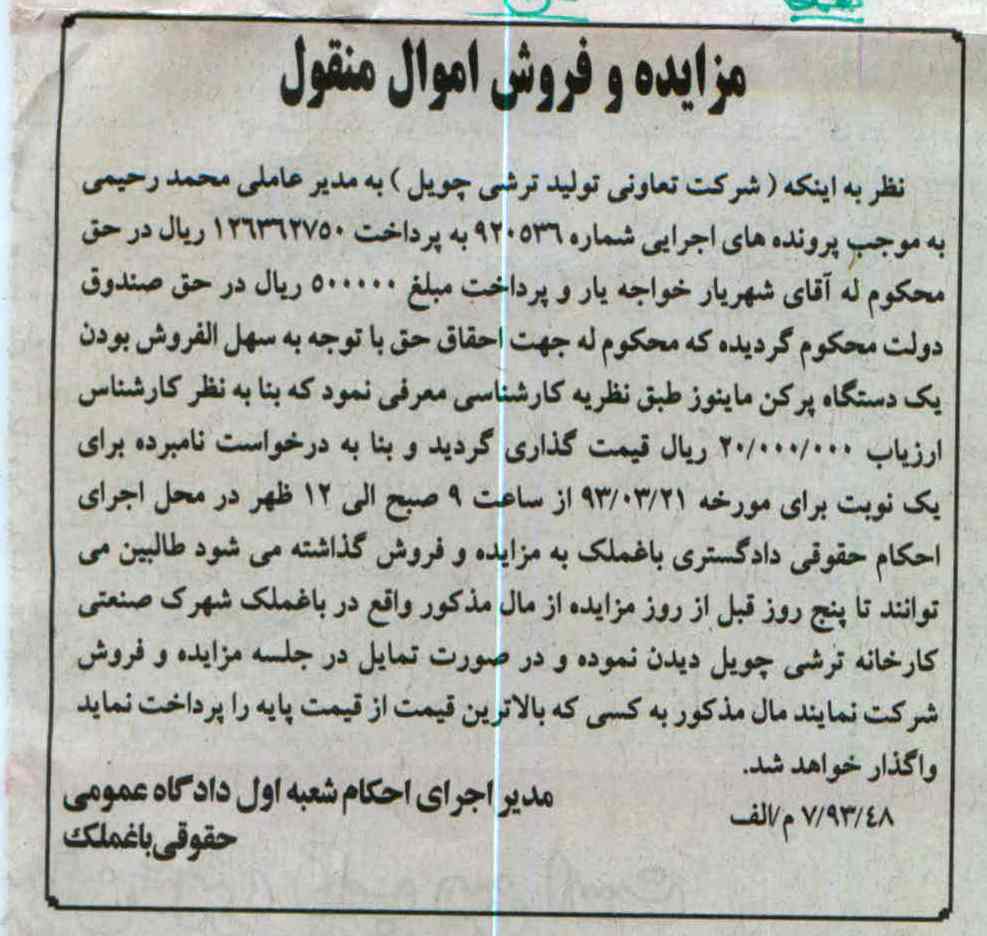 مزایده و فروش اموال منقول
نظر به اینکه ( شرکت تعاونی تولید ترشی چویل ) به مدیر عاملی محمد رحیمی
به موجب پرونده های اجرایی شماره ۹۲۰۵۳۶ به پرداخت ۱۲۶۳۶۲۷۵۰ ریال در حق
محکوم له آقای شهریار خواجه یار و پرداخت مبلغ ۵۰۰۰۰۰ ریال در حق صندوق
دولت محکوم گردیده که محکوم له جهت احقاق حق با توجه به سهل الفروش بودن
یک دستگاه پرکن ماینوز طبق نظریه کارشناسی معرفی نمود که بنا به نظر کارشناس
ارزیاب ۲۰/۰۰۰/۰۰۰ ریال قیمت گذاری گردید و بنا به درخواست نامبرده برای
یک نوبت برای مورخه ۹۳/۰۳/۲۱ از ساعت ۹ صبح الی ۱۲ ظهر در محل اجرای
احکام حقوقی دادگستری باغملک به مزایده و فروش گذاشته می شود طالبین می
توانند تا پنج روز قبل از روز مزایده از مال مذکور واقع در باغملک شهرک صنعتی
کارخانه ترشی چویل دیدن نموده و در صورت تمایل در جلسه مزایده و فروش
شرکت نمایند مال مذکور به کسی که بالاترین قیمت از قیمت پایه را پرداخت نماید
واگذار خواهد شد.
مدیر اجرای احکام شعبه اول دادگاه عمومی
۷/۹۳/۴۸ م/الف
حقوقی باغملک